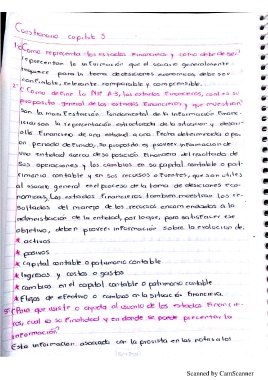 Cuestionario capitulo 3
1¿Como representa los estados financieros y como debe de ser?
representan la información que el usuario generalmente
requiere para la toma de decisiones economicas debe ser
confiable, relevante, comparable y comprensible.
2¿Cómo define la NIF A-3, los estados financieros, cual es su
proposito general de los estados financieros y que muestran?
son la manifestacion fundamental de la información financ-
iera; son la representación estructurada de la situacion y desarr-
ollo financiero de una entidad a una fecha determinada o por
un periodo definido. Su proposito es proveer información de
una entidad acerca de su posición financiera del resultado de
sus operaciones y los cambios en su capital contable o pat-
rimonio contable y en sus recursos o fuentes, que son utiles
al usuario general en el proceso de la toma de desiciones eco-
nomicas. Los estados financieros tambien muestran los re-
sultados del manejo de los recursos encomendados a la
administración de la entidad, por lo que, para satisfacer ese
objetivo, deben proveer información sobre la evolucion de:
* activos
* pasivos
* Capital contable o patrimonio contable
* Ingresos y costos o gastos
* cambios en el capital contable o patrimonio contable
* Flujos de efectivo o cambios en la situación financiera.
3¿Para que asistir o ayuda al usuario de los estados financie-
ros, cual es su finalidad y en donde se puede presentar la
información?
Esta información asociada con la provista en las notas a los
Scanned by CamScanner